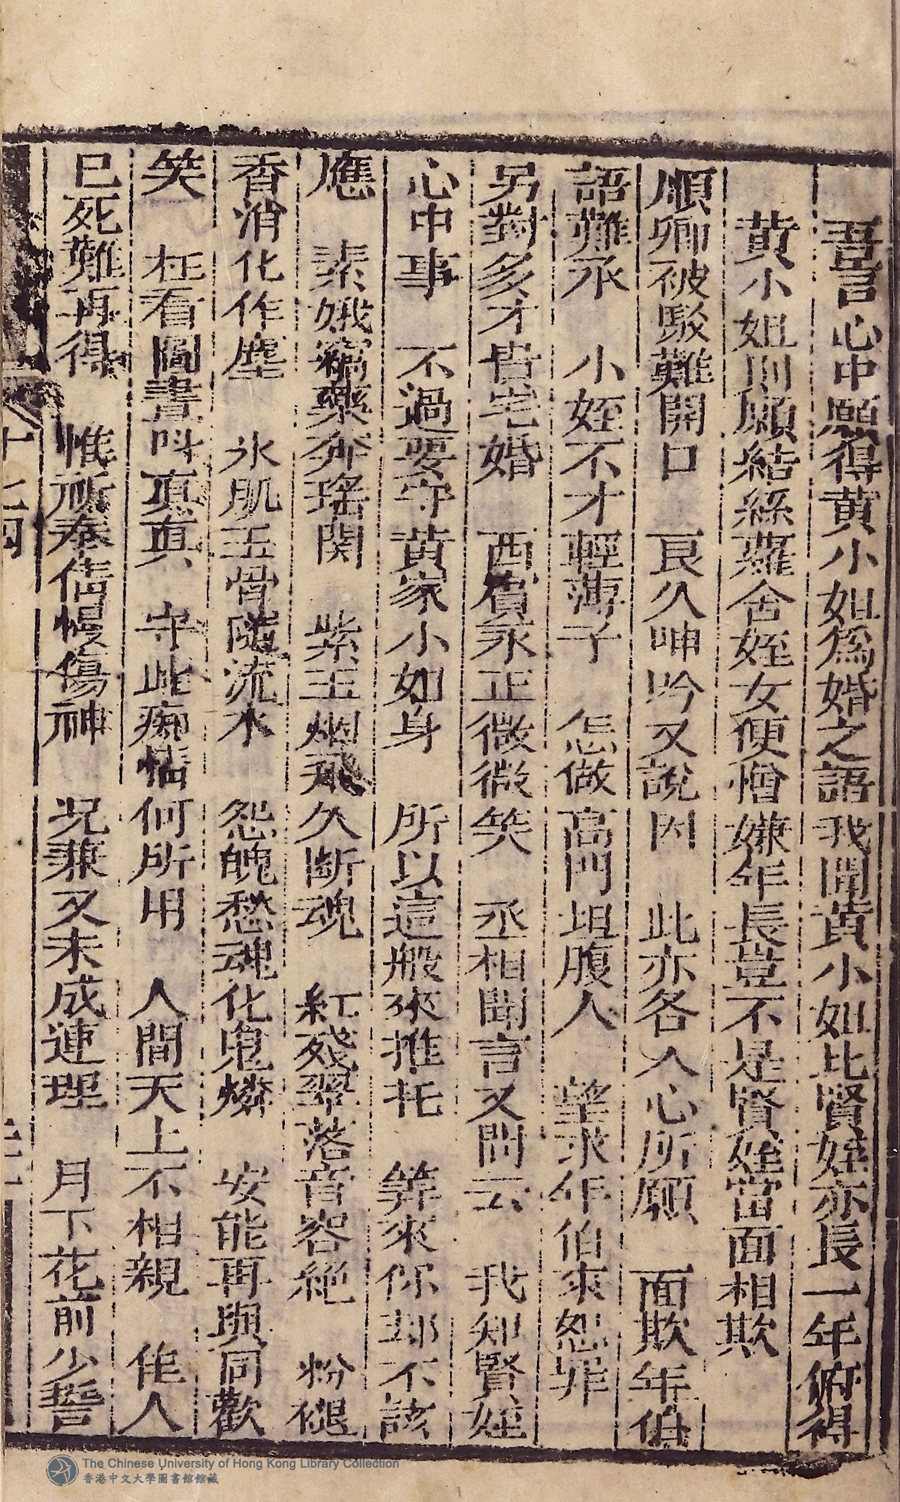 吾言心中願得黄小姐為婚之語我聞黄小姐比賢姪亦長一年俯得
黄小姐則願結絲蘿舍姪女便憎嫌年長豈不是賢姪當面相欺
順卿被駁難開口 良久呻吟又說因 此亦各人心所願 面欺年伯
語難承 小姪不才輕薄子 怎做高門坦腹人 望求年伯來恕罪
另對多才貴宅婚 西賓永正微微笑 丞相聞言又問云 我知賢姪
心中事 不過要守黄家小姐身 所以這般來推托 筭來你却不該
應 素娥竊藥奔瑤関 紫玉烟飛久断魂 紅殘翠落音容絶 粉褪
香消化作塵 氷肌玉骨隨流水 怨魄愁魂化鬼燐 安能再與同歡
笑 枉看圖畫呌真真 守此痴情何所用 人間天上不相親 佳人
已死難再得 惟祈奉倩慢傷神 况兼又未成連理 月下花前少誓
十七四
The Chinese University of Hong Kong Library Collection
香港中文大學圖書館館藏